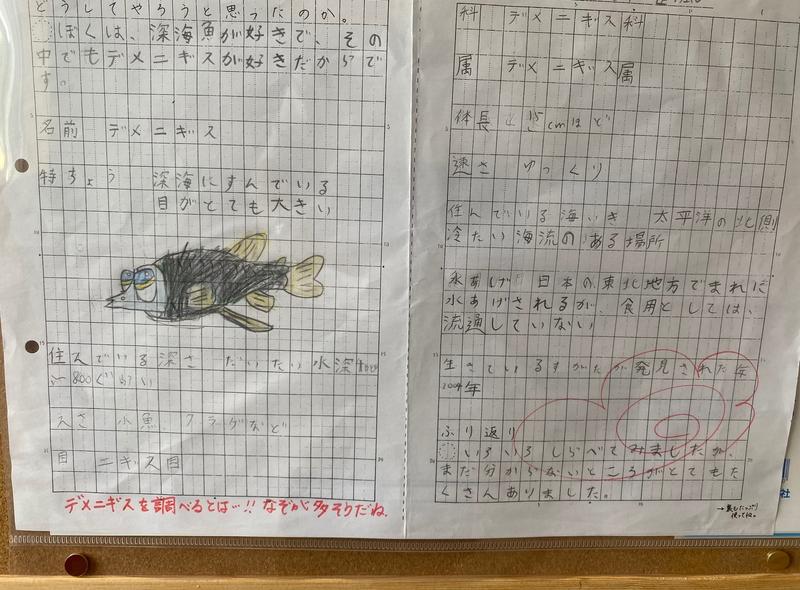 どうしてやろうと思ったのか。
ぼくは、深海魚が好きで、その
中でもデメニギスが好きだからで
す。
名前 デメニギス
特ちょう 深海にすんでいる
目がとても大きい
住んでいる深さ だいたい水深400
～800ぐらい
えさ 小魚 クラゲなど
目 ニギス目
デメニギスを調べるとは…!! なぞが多そうだね。
科 デメニギス科
属 デメニギス属
体長 15cmほど
速さ ゆっくり
住んでいる海いき 太平洋の北側
冷たい海流のある場所
水あげ 日本の東北地方でまれに
水あげされるが、食用としては、
流通していない
生きているすがたが発見された年
2004年
ふり返り
いろいろしらべてみましたが、
まだ分からないところがとてもた
くさんありました。